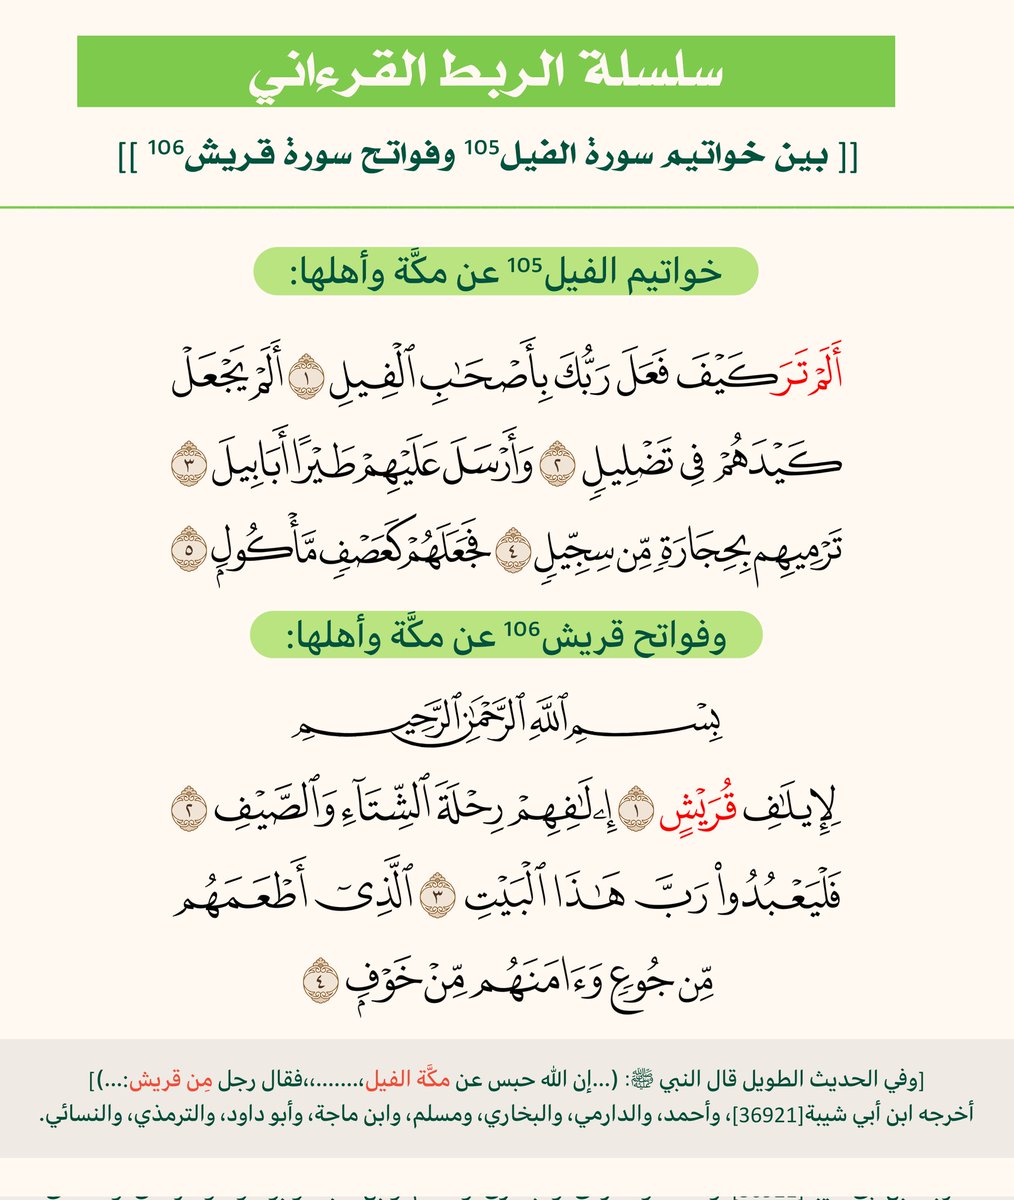 سلسلة الربط القرءاني
[[ بين خواتيم سورة الفيل¹⁰⁵ وفواتح سورة قريش¹⁰⁶ ]]
خواتيم الفيل¹⁰⁵ عن مكَّة وأهلها:
أَلَمۡ تَرَ كَيۡفَ فَعَلَ رَبُّكَ بِأَصۡحَٰبِ ٱلۡفِيلِ ١ أَلَمۡ يَجۡعَلۡ
كَيۡدَهُمۡ فِي تَضۡلِيلٖ ٢ وَأَرۡسَلَ عَلَيۡهِمۡ طَيۡرًا أَبَابِيلَ ٣
تَرۡمِيهِم بِحِجَارَةٖ مِّن سِجِّيلٖ ٤ فَجَعَلَهُمۡ كَعَصۡفٖ مَّأۡكُولِۭ ٥
وفواتح قريش¹⁰⁶ عن مكَّة وأهلها:
بِسۡمِ ٱللَّهِ ٱلرَّحۡمَٰنِ ٱلرَّحِيمِ
لِإِيلَٰفِ قُرَيۡشٍ ١ إِۦلَٰفِهِمۡ رِحۡلَةَ ٱلشِّتَآءِ وَٱلصَّيۡفِ ٢
فَلۡيَعۡبُدُواْ رَبَّ هَٰذَا ٱلۡبَيۡتِ ٣ ٱلَّذِيٓ أَطۡعَمَهُم
مِّن جُوعٖ وَءَامَنَهُم مِّنۡ خَوۡفِۭ ٤
[وفي الحديث الطويل قال النبي ﷺ: (...إن الله حبس عن مكَّة الفيل،.......،،فقال رجل مِن قريش:...)]
أخرجه ابن أبي شيبة[36921]، وأحمد، والدارمي، والبخاري، ومسلم، وابن ماجة، وأبو داود، والترمذي، والنسائي.